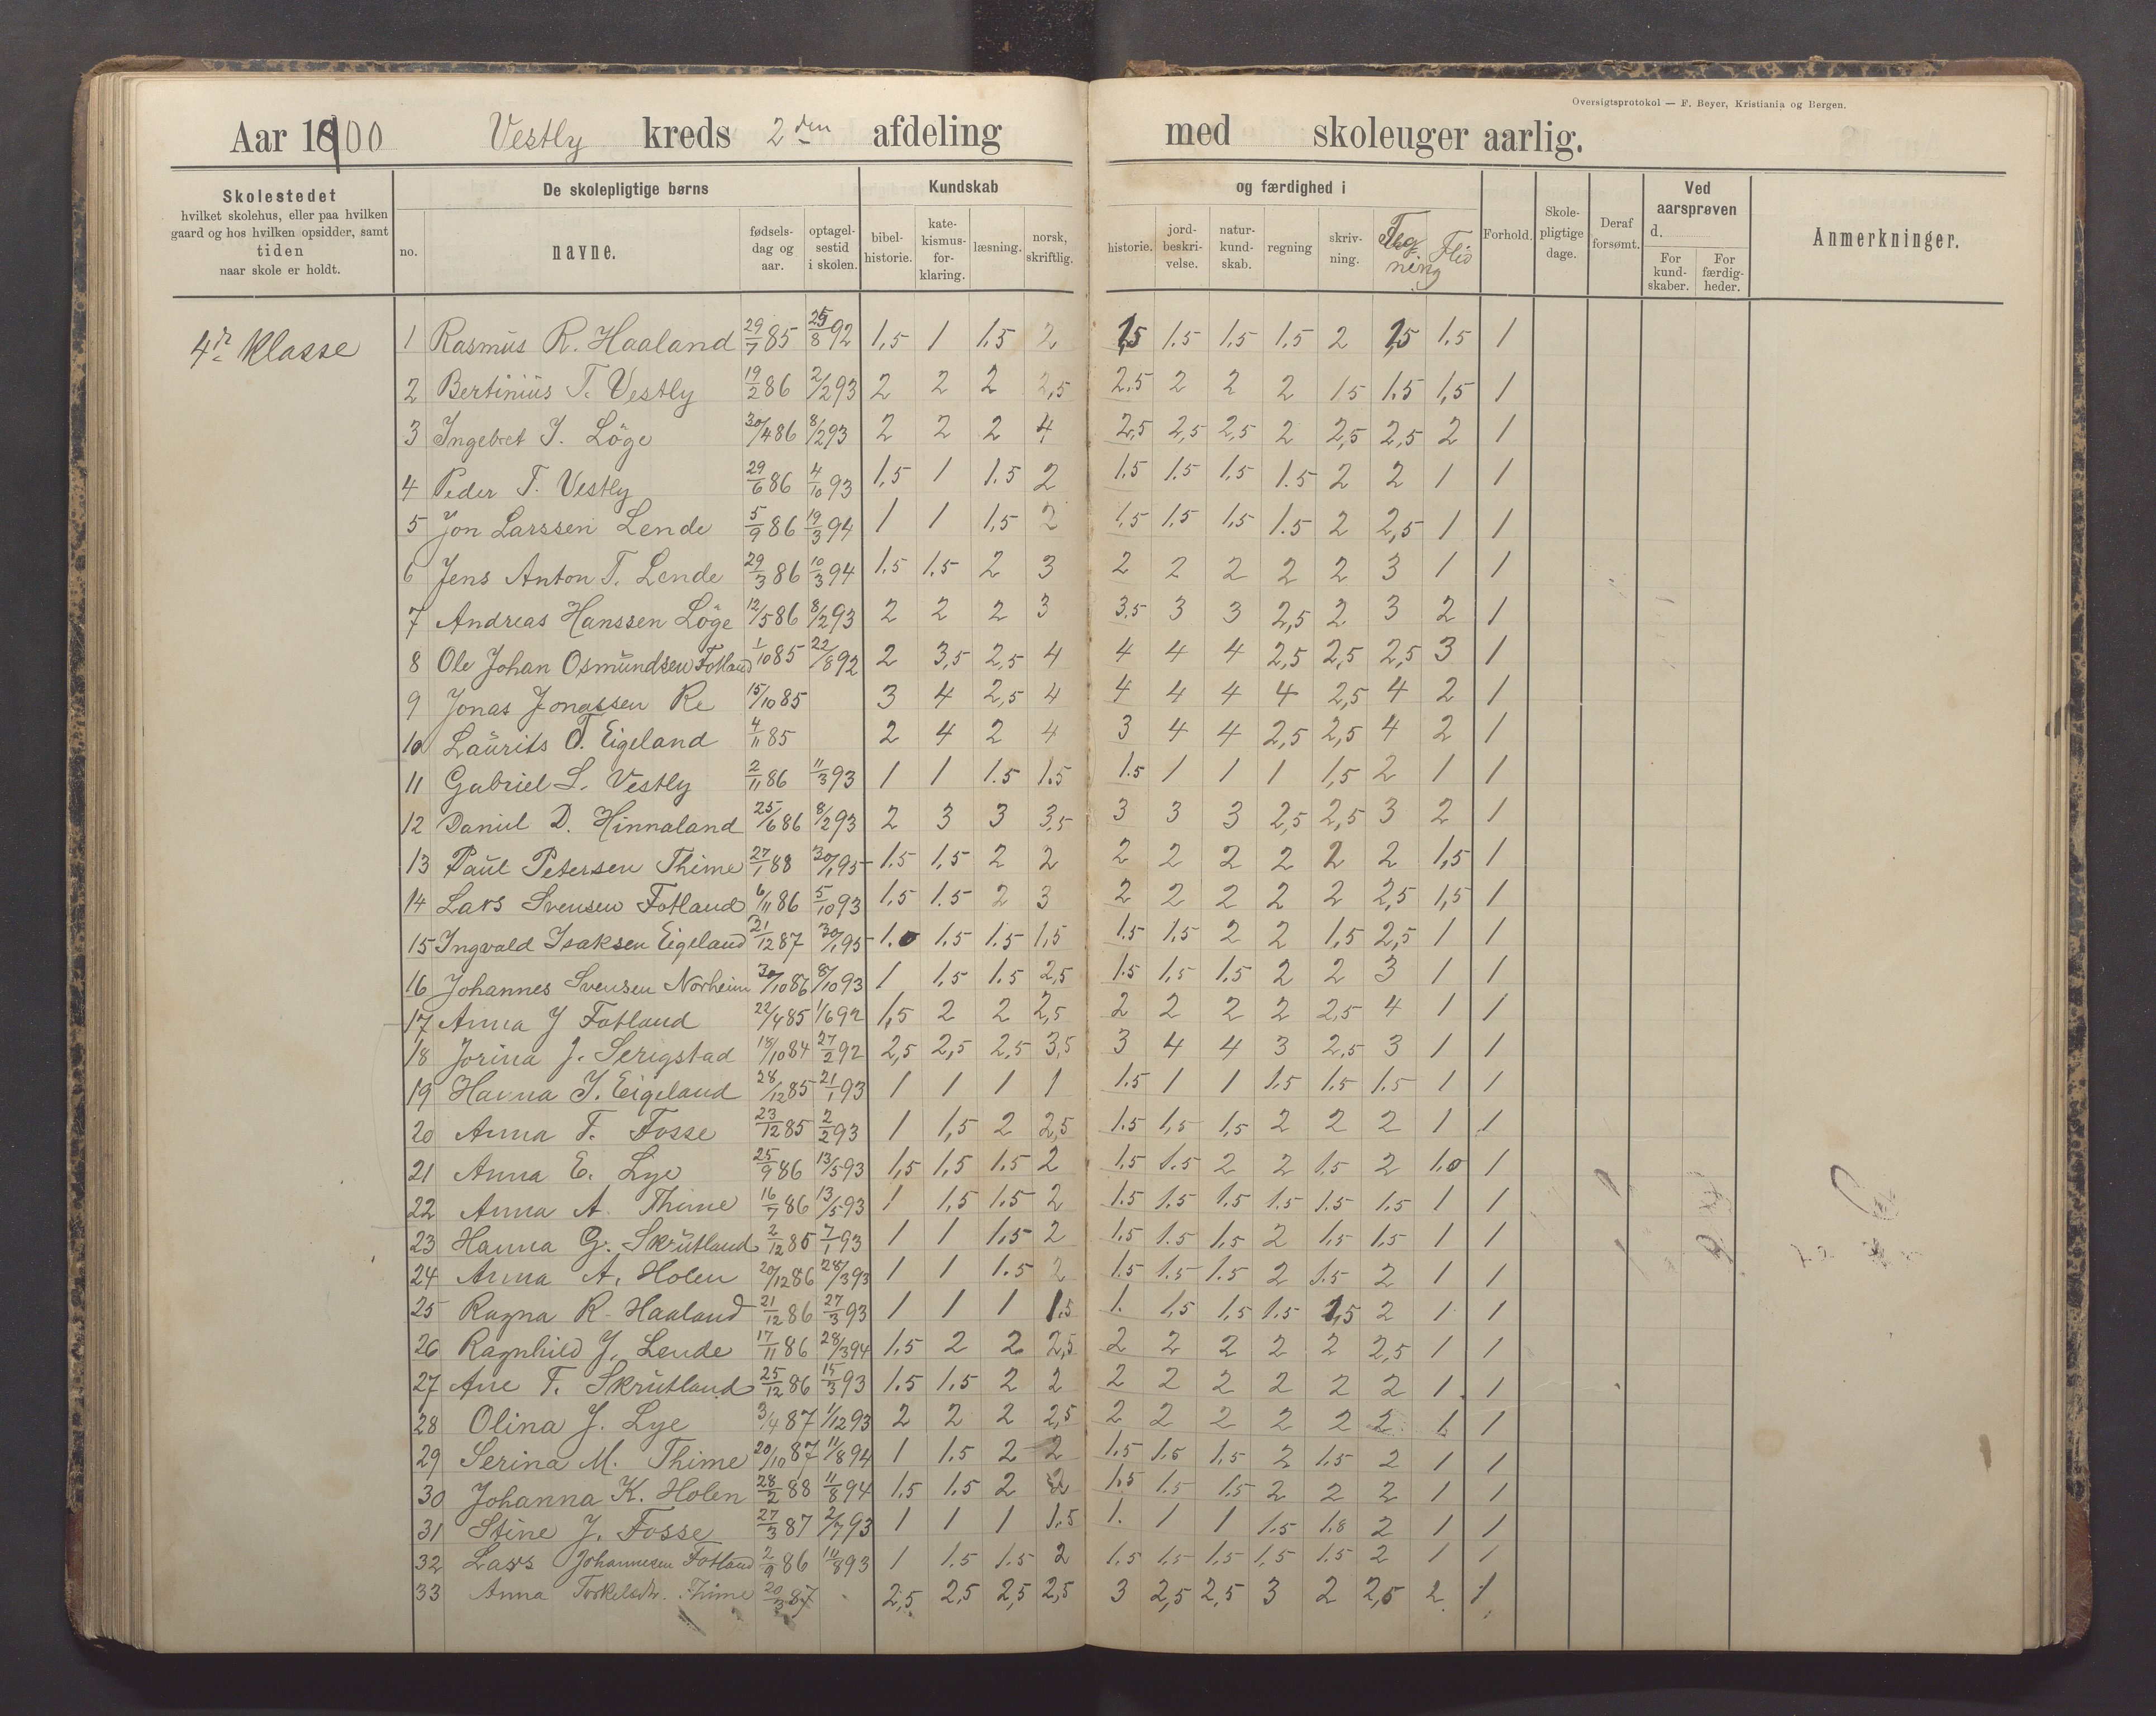 Oversigtsprotokol — F. Beyer, Kristiania og Bergen.
Aar 1900 Vestly kreds 2den afdeling med skoleuger aarlig.
Skolestedet hvilket skolehus, eller paa hvilken gaard og hos hvilken opsidder, samt tiden naar skole er holdt.
De skolepligtige børns
no. navne. fødsels-dag og aar. optagel-sestid i skolen.
Kundskab og færdighed i
bibel-historie. kate-kismus-for-klaring. læsning. norsk, skriftlig. historie. jord-beskri-velse. natur-kund-skab. regning skriv-ning. Teg ning Flid
Forhold. Skole-pligtige dage. Deraf forsømt.
Ved aarsprøven d.
For kund-skaber. For færdig-heder.
Anmerkninger.
4de Klasse
1 Rasmus R. Haaland 29/7 85 25/8 92 1,5 1 1.5 2 1,5 1.5 1.5 1.5 2 1,5 1.5 1
2 Bertinius T. Vestly 19/2 86 2/2 93 2 2 2 2,5 2.5 2 2 2 15 1.5 1,5 1
3 Ingebret J. Löge 30/4 86 8/2 93 2 2 2 4 2,5 2,5 2,5 2 2,5 2,5 2 1
4 Peder T. Vestly 29/6 86 4/10 93 1,5 1 1.5 2 1.5 1.5 1.5 1.5 2 2 1 1
5 Jon Larssen Lende 5/9 86 19/3 94 1 1 1,5 2 1,5 1,5 1,5 1.5 2 2,5 1 1
6 Jens Anton T. Lende 29/3 86 10/3 94 1.5 1.5 2 3 2 2 2 2 2 3 1 1
7 Andreas Hanssen Löge 12/5 86 8/2 93 2 2 2 3 3,5 3 3 2,5 2 3 2 1
8 Ole Johan Osmundsen Fotland 1/10 85 22/8 92 2 3,5 2,5 4 4 4 4 2,5 2,5 2,5 3 1
9 Jonas Jonassen Re 15/10 85 3 4 2,5 4 4 4 4 4 2,5 4 2 1
10 Laurits T. Eigeland 4/11 85 2 4 2 4 3 4 4 2,5 2,5 4 2 1
11 Gabriel L. Vestly 2/11 86 11/3 93 1 1 1.5 1.5 1.5 1 1 1 1,5 2 1 1
12 Daniel D. Hinnaland 25/6 86 8/2 93 2 3 3 3,5 3 3 3 2,5 2,5 3 2 1
13 Paul Petersen Thime 27/1 88 30/1 95 1.5 1,5 2 2 2 2 2 2 2 2 1,5 1
14 Lars Svensen Fotland 6/11 86 5/10 93 1,5 1.5 2 3 2 2 2 2 2 2,5 1,5 1
15 Ingvald Isaksen Eigeland 31/12 87 30/1 95 1.0 1.5 1.5 1,5 1.5 1.5 2 2 1,5 2,5 1 1
16 Johannes Svensen Norheim 30/10 86 8/10 93 1 1,5 1.5 2,5 1.5 1,5 1.5 2 2 3 1 1
17 Anna J Fotland 22/4 85 1/6 92 1,5 2 2 2,5 2 2 2 2 2,5 4 1 1
18 Jorina J. Serigstad 18/10 84 27/2 92 2,5 2,5 2,5 3,5 3 4 4 3 2,5 3 1 1
19 Hanna J. Eigeland 28/12 85 21/1 93 1 1 1 1 1.5 1 1 1.5 1.5 1.5 1 1
20 Anna T. Fosse 23/12 85 2/2 93 1 1,5 2 2,5 1.5 1,5 1,5 2 2 2 1 1
21 Anna E. Lye 25/9 86 13/5 93 1,5 1,5 1.5 2 1.5 1.5 2 2 1.5 2 1.0 1
22 Anna A. Thime 16/7 86 13/5 93 1 1,5 1.5 2 1.5 1.5 1.5 1.5 1.5 1.5 1 1
23 Hanna G. Skrutland 2/12 85 7/1 93 1 1 1,5 2 1,5 1.5 1,5 2 1,5 1,5 1 1
24 Anna A. Holen 20/12 86 28/3 93 1 1 1.5 2 1.5 1.5 1.5 2 1.5 2 1 1
25 Ragna R. Haaland 21/12 86 27/3 93 1 1 1 1.5 1. 1,5 1,5 1.5 1,5 2 1 1
26 Ragnhild J. Lende 17/11 86 28/3 94 1,5 2 2 2,5 2 2 2 2 2 2,5 1 1
27 Ane T. Skrutland 25/12 86 15/3 93 1.5 1,5 2 2 2 2 2 2 2 2 1. 1
28 Olina J. Lye 3/4 87 1/12 93 2 2 2 2,5 2 2 2 2 2 2 1. 1
29 Serina M. Thime 20/10 87 11/8 94 1 1.5 2 2 1.5 1.5 1.5 2 1.5 2 1 1
30 Johanna K. Holen 28/2 88 11/8 94 1.5 1.5 2 2 1.5 1.5 1.5 2 2 2 1 1
31 Stine J. Fosse 27/3 87 2/7 93 1 1 1 1.5 1. 1 1 1.5 1.8 2 1 1
32 Lars Johannesen Fotland 2/9 86 11/8 93 1 1.5 1.5 2 1.5 1.5 1.5 1,5 1.5 2 1 1
33 Anna Torkelsdtr. Thime 20/3 87 2,5 2,5 2,5 2,5 3 2,5 2,5 3 2 2,5 2 1